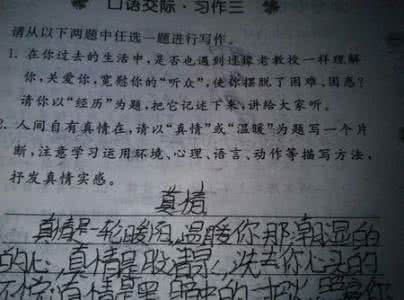 口语交际·习作三
请从以下两题中任选一题进行写作。
1. 在你过去的生活中,是否也遇到过像老教授一样理解
你,关爱你,宽慰你的“听众”,使你摆脱了困难、困惑?
请你以“经历”为题,把它记述下来,讲给大家听。
2. 人间自有真情在,请以“真情”或“温暖”为题写一个片
断,注意学习运用环境、心理、语言、动作等描写方法,
抒发真情实感。
真情
真情是一轮暖阳,温暖你那潮湿的
的心,真情是一股清泉,洗去你心头的
真情是黑暗中的一把火,照亮你